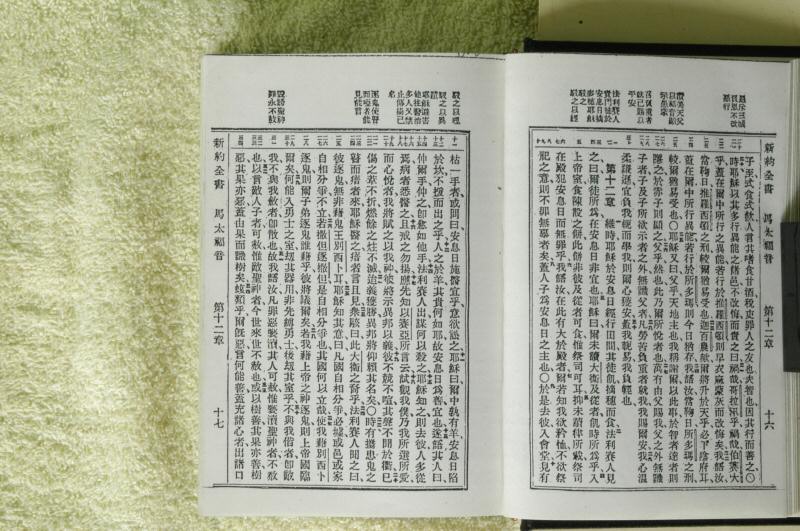 新約全書　馬太福音　第十二章　十六
子至式食式飲人言其嗜食甘酒稅吏罪人之友也夫智也因其行而善之〇
時耶穌以其多行異能之諸邑不改悔而責之曰禍哉哥拉汛乎禍哉伯賽大
乎蓋在爾中所行之異能若行於推羅西頓則早衣麻蒙灰而改悔矣我語汝
當鞫日推羅西頓之刑較爾猶易受也迦百農歟爾將升於天乎必下陰府耳
蓋在爾中所行異能若行於所多馬則今日猶存我語汝當鞫日所多馬之刑
較爾猶易受也〇耶穌又曰父乎天地主也我稱謝爾以此事於智者達者則
隱之於赤子則顯之父乎然也此乃爾所悅者也萬有由父賜我父之外無識
子者子及子所欲示者之外無識父者凡勞苦負重者就我我賜爾安我心溫
柔謙遜宜負我軛而學我則爾心獲安蓋我軛易我負輕也
第十二章　維時耶穌於安息日經行田間其徒飢摘穗而食法利賽人見
之曰爾徒所爲在安息日非宜也耶穌曰爾未讀大衛及從者飢時所爲乎入
上帝室食陳設之餅此餅非彼及從者可食惟祭司可耳抑未讀律所載祭司
在殿犯安息日而無罪乎我語汝在此有大於殿者爾若知我欲矜恤不欲祭
祀之意則不罪無辜者矣蓋人子爲安息日之主也〇於是去彼入會堂見有
枯一手者或問曰安息日施醫宜乎意欲訟之耶穌曰爾中孰有羊安息日陷
於坎不援而出之乎人之於羊其貴何如耶故安息日爲善宜也遂語其人曰
伸爾手伸之即愈如他手法利賽人出謀何以殺之耶穌知之則去彼人多從
焉病者悉醫之且戒之勿揚應先知以賽亞所言云試觀我僕乃我所選所愛
而心悅者我將賦之以我神彼將示異邦以義彼不競不喧其聲不聞於衢已
傷之葦不折燃餘之炷不滅迨義獲勝異邦將仰賴其名矣〇時有攜患鬼之
瞽而瘖者來耶穌醫之瘖者言且見衆駭曰此大衛之裔乎法利賽人聞之曰
彼逐鬼無非藉鬼王別西卜耳耶穌知其意曰凡國自相分爭必墟或邑或家
自相分爭不立若撒但逐撒但是自相分爭也其國何以立哉使我藉別西卜
逐鬼則爾子弟逐鬼誰藉乎彼將議爾矣若我藉上帝之神逐鬼則上帝國臨
爾矣何能入勇士之室刼其器用非先縛勇士後刼其室乎不與我偕者即敵
我不與我斂者即散也故我語汝凡罪惡褻瀆其人可赦惟褻瀆聖神者不赦
也以言敵人子者可赦惟敵聖神者今世來世不赦也或以樹善其果亦善樹
惡其果亦惡蓋由果而識樹矣蝮類乎爾旣惡言何能善蓋充諸心者出諸口
新約全書　馬太福音　第十二章　十七